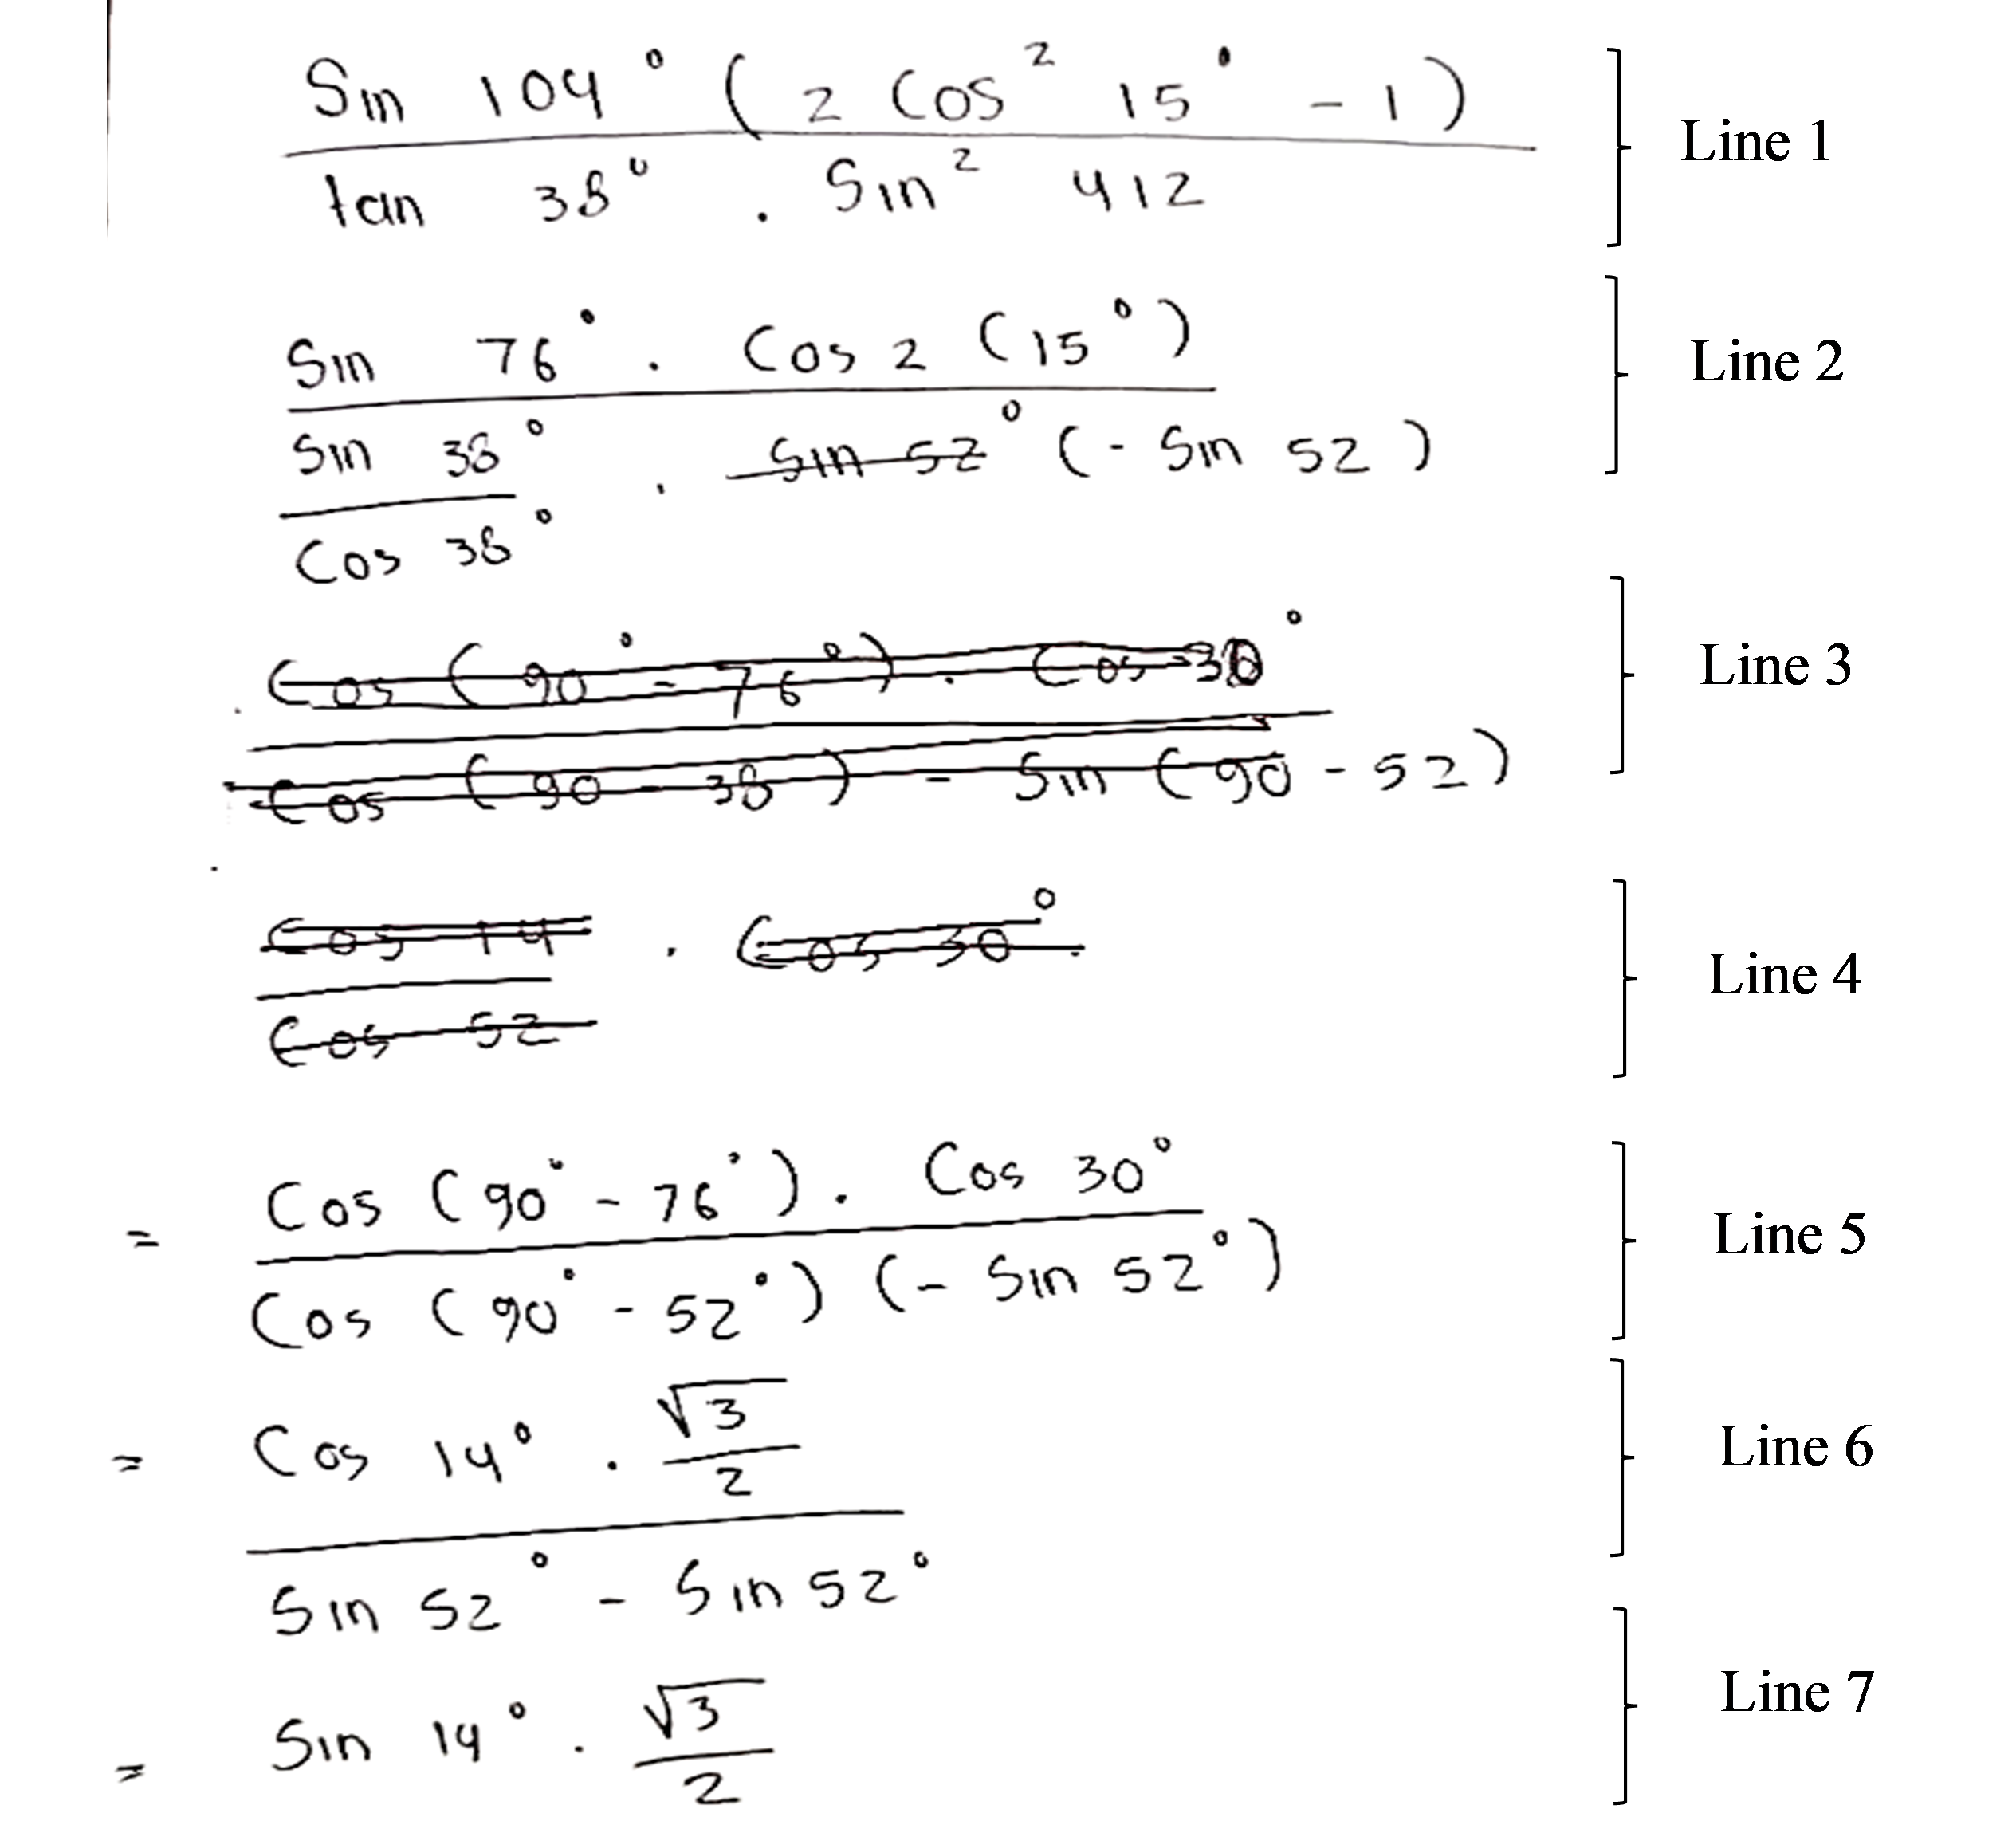 Sin 104° ( 2 Cos² 15° - 1 )
tan 38° . Sin² 412
Line 1
Sin 76° . Cos 2 ( 15° )
Sin 38° . Sin 52° ( - Sin 52 )
Cos 38°
Line 2
Cos ( 90° - 76° ) . Cos 30°
Cos ( 90 - 38 ) - Sin ( 90 - 52 )
Line 3
Cos 14 . Cos 30°
Cos 52
Line 4
= Cos ( 90° - 76° ) . Cos 30°
Cos ( 90° - 52° ) ( - Sin 52° )
Line 5
= Cos 14° . √3/2
Sin 52° - Sin 52°
Line 6
= Sin 14° . √3/2
Line 7